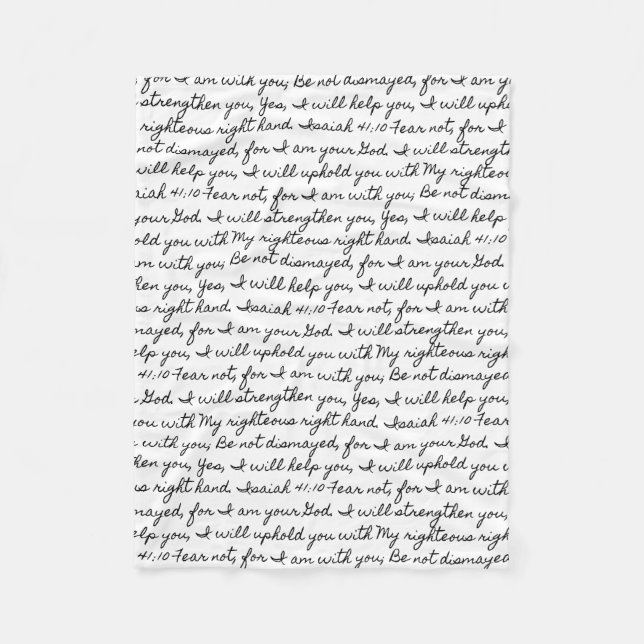 for I am with you; Be not dismayed, for I am
strengthen you, Yes, I will help you, I will
righteous right hand. Isaiah 41:10 Fear not, for I
not dismayed, for I am your God. I will
will help you, I will uphold you with My
41:10 Fear not, for I am with you; Be not
your God. I will strengthen you, Yes, I will help
you with My righteous right hand. Isaiah 41:10
with you; Be not dismayed, for I am your God.
you, Yes, I will help you, I will uphold you
right hand. Isaiah 41:10 Fear not, for I
for I am your God. I will strengthen you,
you, I will uphold you with My righteous
41:10 Fear not, for I am with you; Be not dismayed
God. I will strengthen you, Yes, I will help you,
you with My righteous right hand. Isaiah 41:10 Fear
with you; Be not dismayed, for I am your God. I
you, Yes, I will help you, I will uphold you
right hand. Isaiah 41:10 Fear not, for I am with
for I am your God. I will strengthen you,
you, I will uphold you with My righteous
41:10 Fear not, for I am with you; Be not dismayed